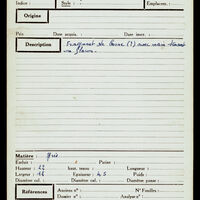 Indice : Style : Emplacem. :
Origine
Prix Date acquis. : Date inscr. :
Description Fragment de (?) avec main tenant
un
Matière : Grès
Enduit : Patine :
Hauteur : 22 haut. monu : Longueur :
Largeur : 16 Épaisseur : 4,5 Poids :
Diamètre col. : Diamètre panse :
Références Anciens nos : N° Fouilles :
Dossier : Analyse :